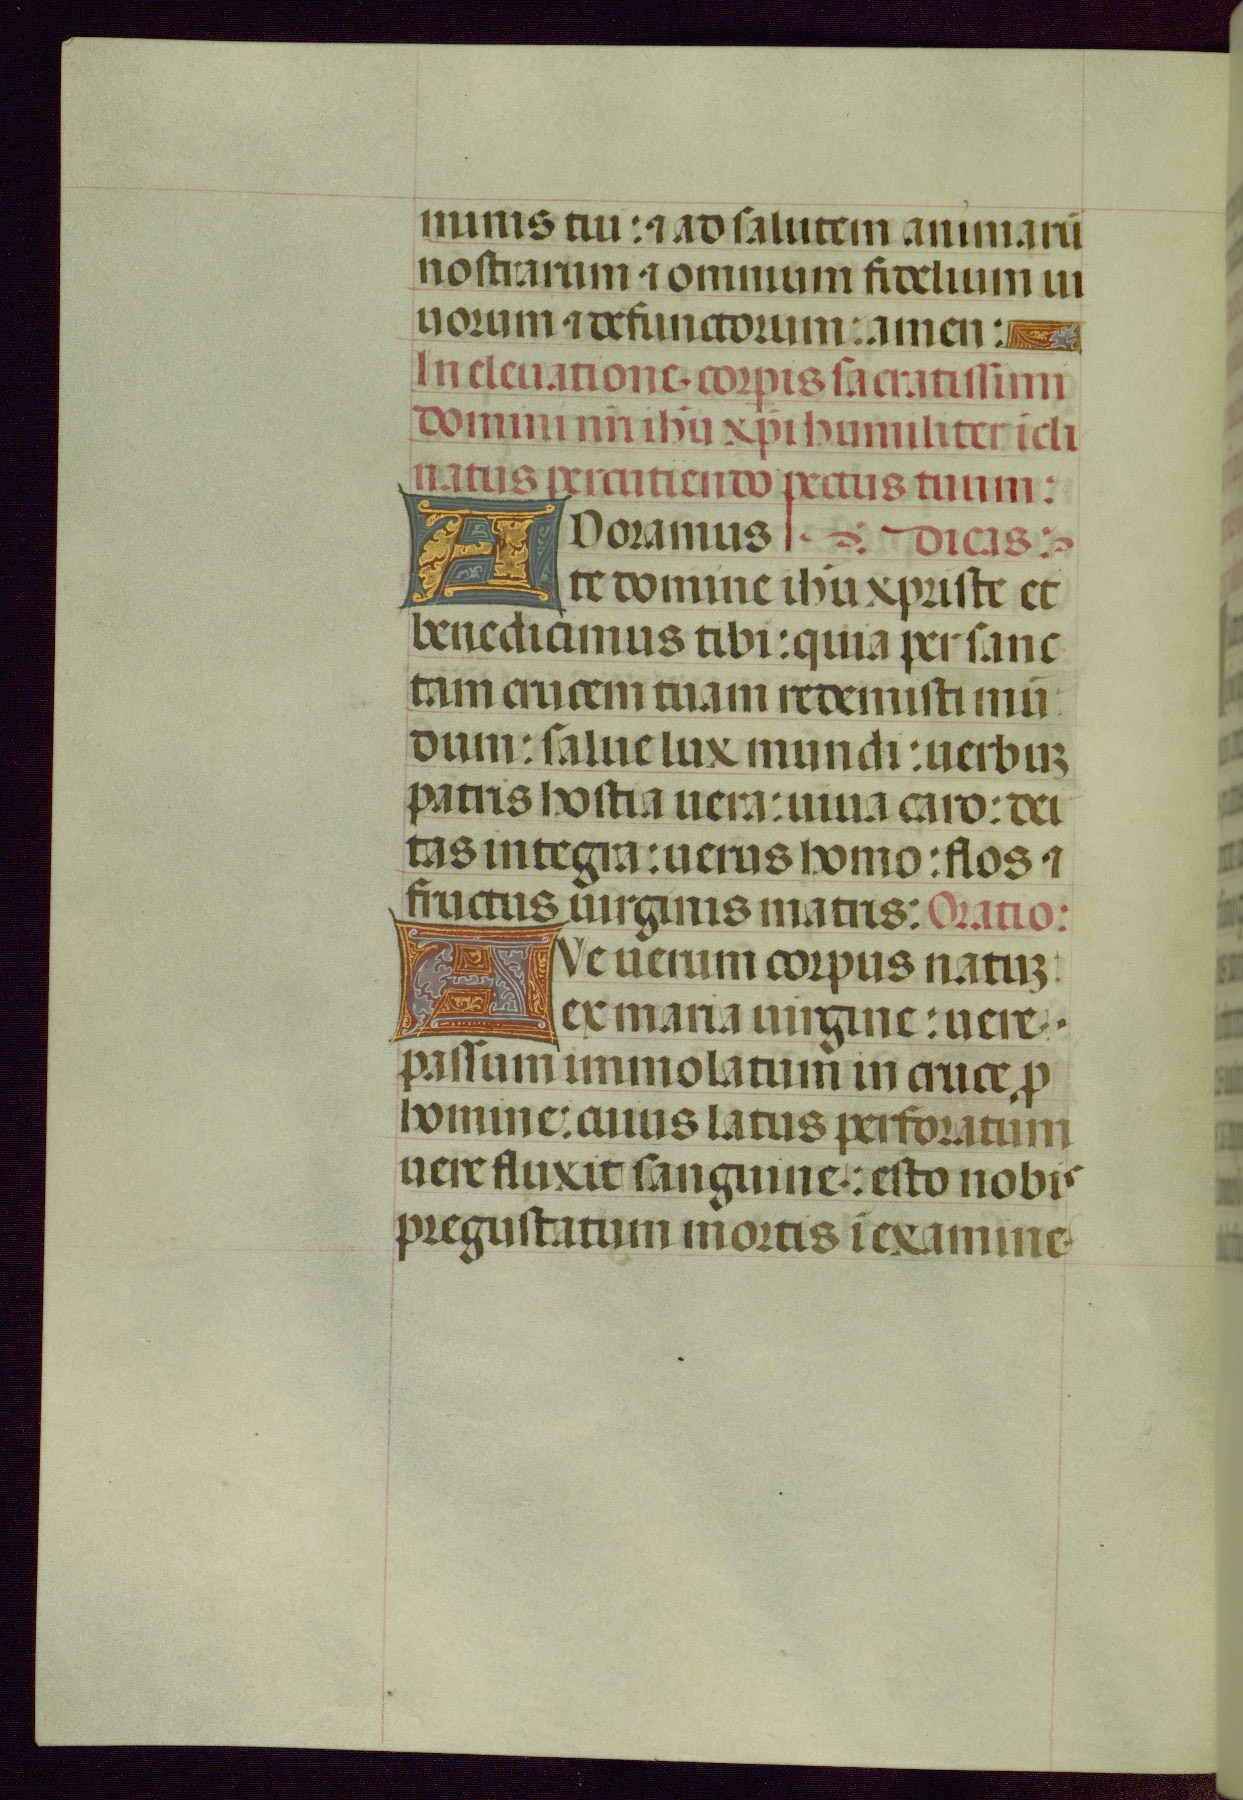 minis tui : ⁊ ad salutem animarū
nostrarum ⁊ omnium fidelium ui
uorum ⁊ defunctorum : amen :
In eleuatione corpis sacratissimi
domini nr̄i ihū xp̄i humiliter īcli
natus percutiendo pectus tuum :
ADoramus dicas :
te domine ihū xpriste et
benedicimus tibi : quia per sanc
tam crucem tuam redemisti mū
dum : salue lux mundi : uerbuꝫ
patris hostia uera : uiua caro : dei
tas integra : uerus homo : flos ⁊
fructus uirginis matris : Oratio :
AVe uerum corpus natuꝫ
ex maria uirgine : uere
passum immolatum in cruce ꝓ
homine : cuius latus perforatum
uere fluxit sanguine : esto nobis
pregustatum mortis ī examine